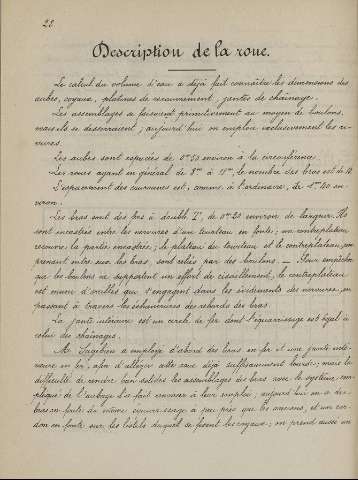 28
Description de la roue.
Le calcul du volume d'eau a déjà fait connaître les dimensions des
aubes, coyaux, platines de recouvrement, jantes de chaînage.
Les assemblages se faisaient primitivement au moyen de boulons,
mais ils se desserraient; aujourd'hui on emploie exclusivement les ri-
vures.
Les aubes sont espacées de 0m50 environ à la circonférence.
Les roues ayant en général de 8m à 11m, le nombre des bras est de
L'espacement des couronnes est, comme à l'ordinaire, de 1m40 en-
viron.
Les bras sont des bras à double T, de 0m20 environ de largeur. Ils
sont encastrés entre les nervures d'un tourteau en fonte; un contreplateau
recouvre la partie encastrée; le plateau du tourteau et le contreplateau, com-
prenant entre eux les bras, sont reliés par des boulons. — Pour empêcher
que les boulons ne supportent un effort de cisaillement, le contreplateau
est muni d'oreilles qui s'engagent dans les évidements des nervures, en
passant à travers les échancrures des rebords des bras.
La jante intérieure est un cercle de fer dont l'équarrissage est égal à
celui des chaînages.
M. Sagebien a employé d'abord des bras en fer et une jante inté-
rieure en fer, afin d'alléger cette roue déjà suffisamment lourde; mais la
difficulté de rendre bien solides les assemblages des bras avec le système com-
pliqué de l'aubage l'a fait renoncer à leur emploi; aujourd'hui on a des
bras en fonte du même équarrissage à peu près que les anciens, et une cou-
ronne en fonte, sur les listels duquel se fixent les coyaux; on prend aussi un